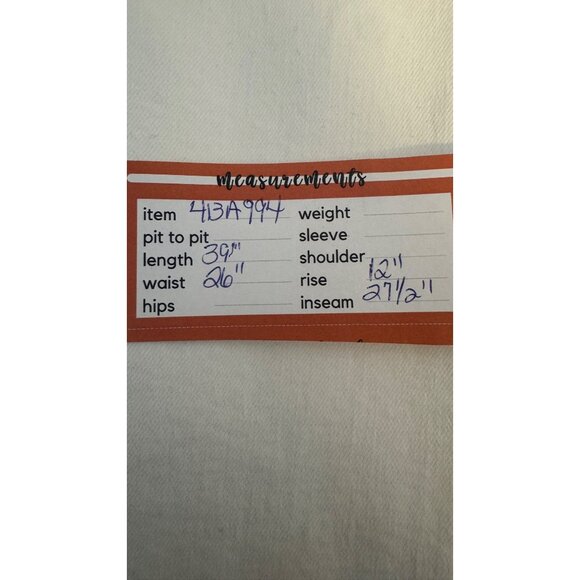 measurements
item 4BA994 weight
pit to pit sleeve
length 39" shoulder
waist 26" rise 12"
hips inseam 27 1/2"